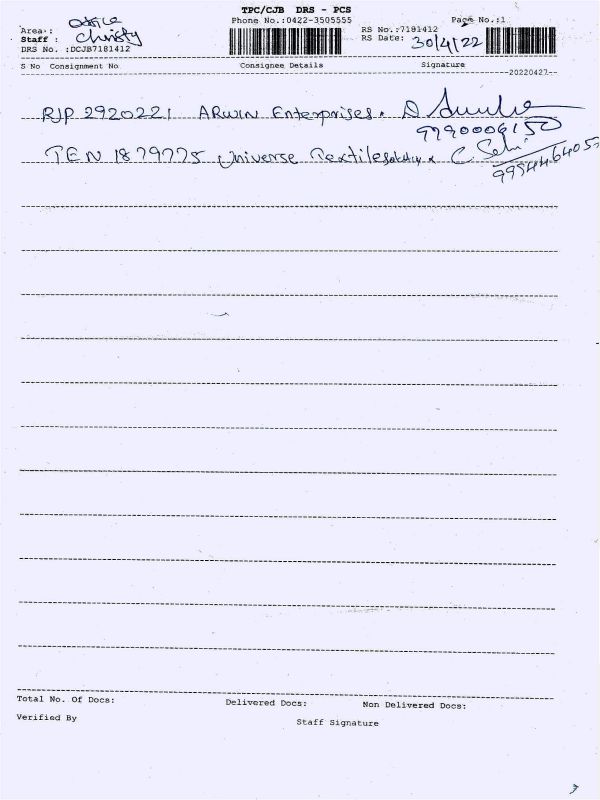 TPC/CJB DRS - PCS
Phone No.:0422-3505555
Page No.:1
Area : Office
Staff : Christy
DRS No. :DCJB7181412
RS No.:7181412
RS Date: 30/4/22
S No Consignment No Consignee Details Signature
20220427
RJP 2920221 ARWIN Enterprises.
9790006150
TEN 1879775 Universe Textile
Total No. Of Docs: Delivered Docs: Non Delivered Docs:
Verified By Staff Signature